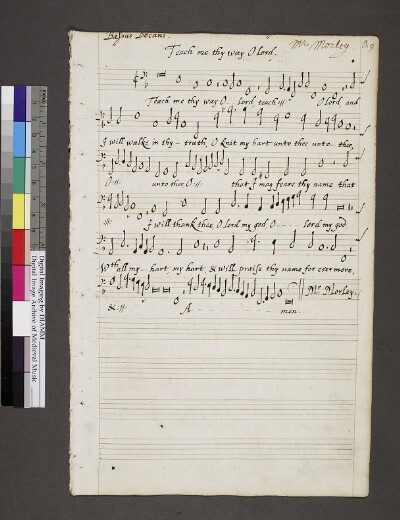 Bassus Decani.
Mr. Morley
Teach me thy way, O Lord.
Teach me thy way O lord, teach :||: O lord, and
I will walke in thy - truth, O knit my hart unto thee unto - thee,
O :||: unto thee O :||: that I may feare thy name, that
:||: I will thank thee O lord my god O - - - lord my god
Wth all my - hart, my hart, & will praise thy name for evermore,
Mr. Morley.
& :||: A - - - - - - - - men.
Digital Imaging by DIAMM
Digital Image Archive of Medieval Music